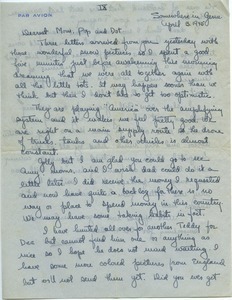 IX
PAR AVION
Somewhere in Germ.
April 3, 1945
Dearest Mom, Pop and Dot,
Three letters arrived from you yesterday with
those wonderful snow pictures so I spent a good
five minutes just before awakening this morning
dreaming that we were all together again with
all the little tots. It may happen sooner than we
think but well I don't like to get too optimistic.
They are playing "America" over the amplifying
system and it makes us feel pretty good. We
are right on a main supply route so the drone
of trucks, tanks and other vehicles is almost
constant.
Golly but I am glad you could go to see
Amy's Mom, and I wish Dad could do it a
little later. I did receive the money I requested
and now have quite a bankroll for there is no
way or place to spend money in this country.
We may have some
I have hunted all over for another Teddy for
Dee but cannot find him one, or anything as
nice so I hope he does not mind waiting. I
have some more colored pictures from England
but will not send them yet. Did you ever get